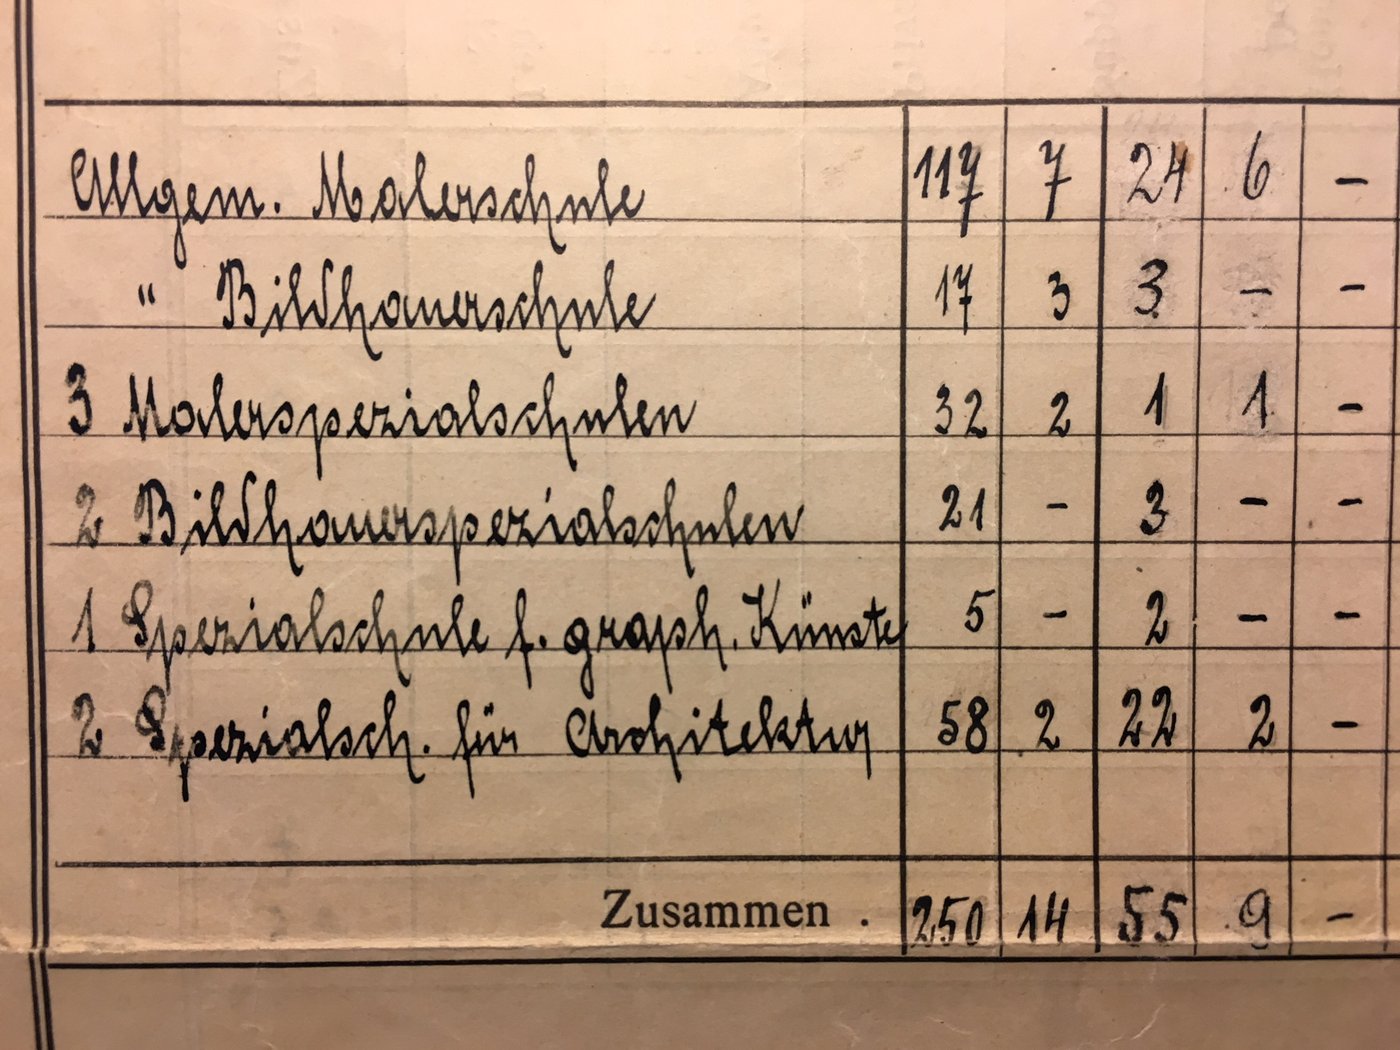 Allgem. Malerschule 117 7 24 6 –
" Bildhauerschule 17 3 3 – –
3 Malerspezialschulen 32 2 1 1 –
2 Bildhauerspezialschulen 21 – 3 – –
1 Spezialschule f. graph. Künste 5 – 2 – –
2 Spezialsch. für Architektur 58 2 22 2 –
Zusammen . 250 14 55 9 –